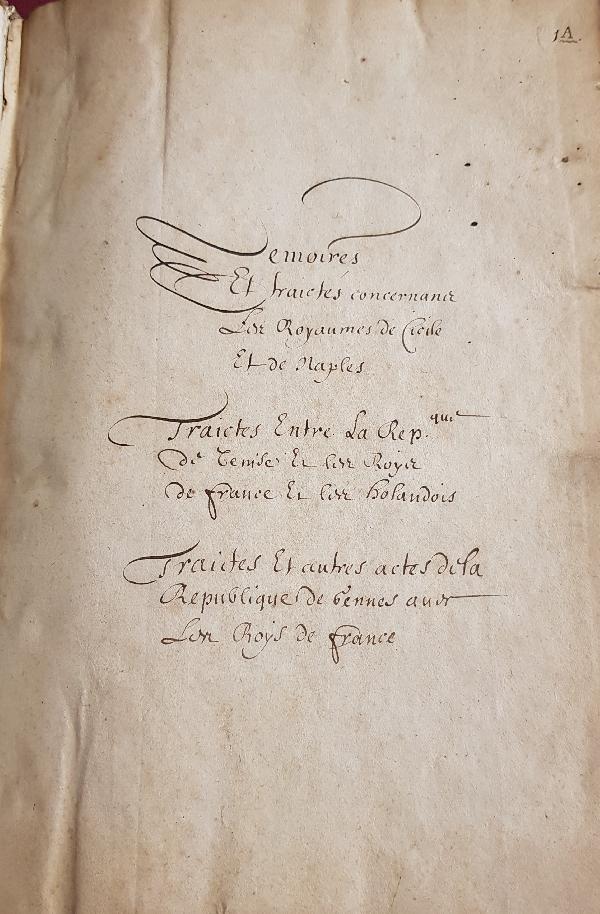 1A.
Memoires
Et traictés concernant
Les Royaumes de Cicile
Et de Naples
Traictes Entre La Rep.que
de Venise Et les Roys
de france Et les holandois
Traictes Et autres actes de la
Republique de Gennes avec
Les Roys de france